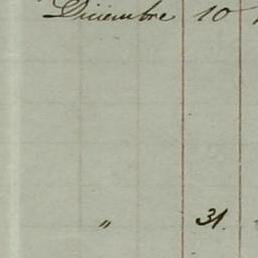 Diciembre 10
" 31.